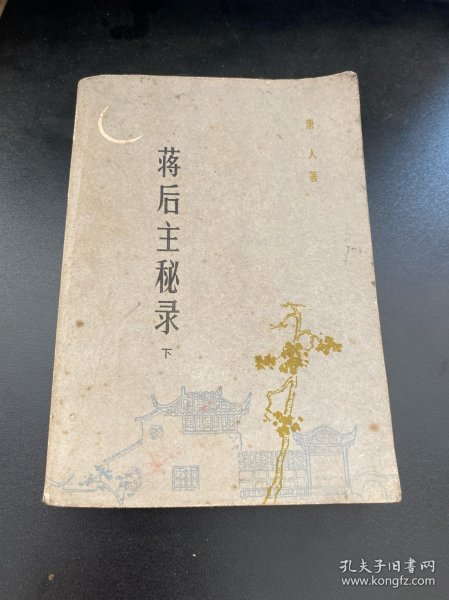 唐人著
蒋后主秘录
下
孔夫子旧书网
www.kongfz.com